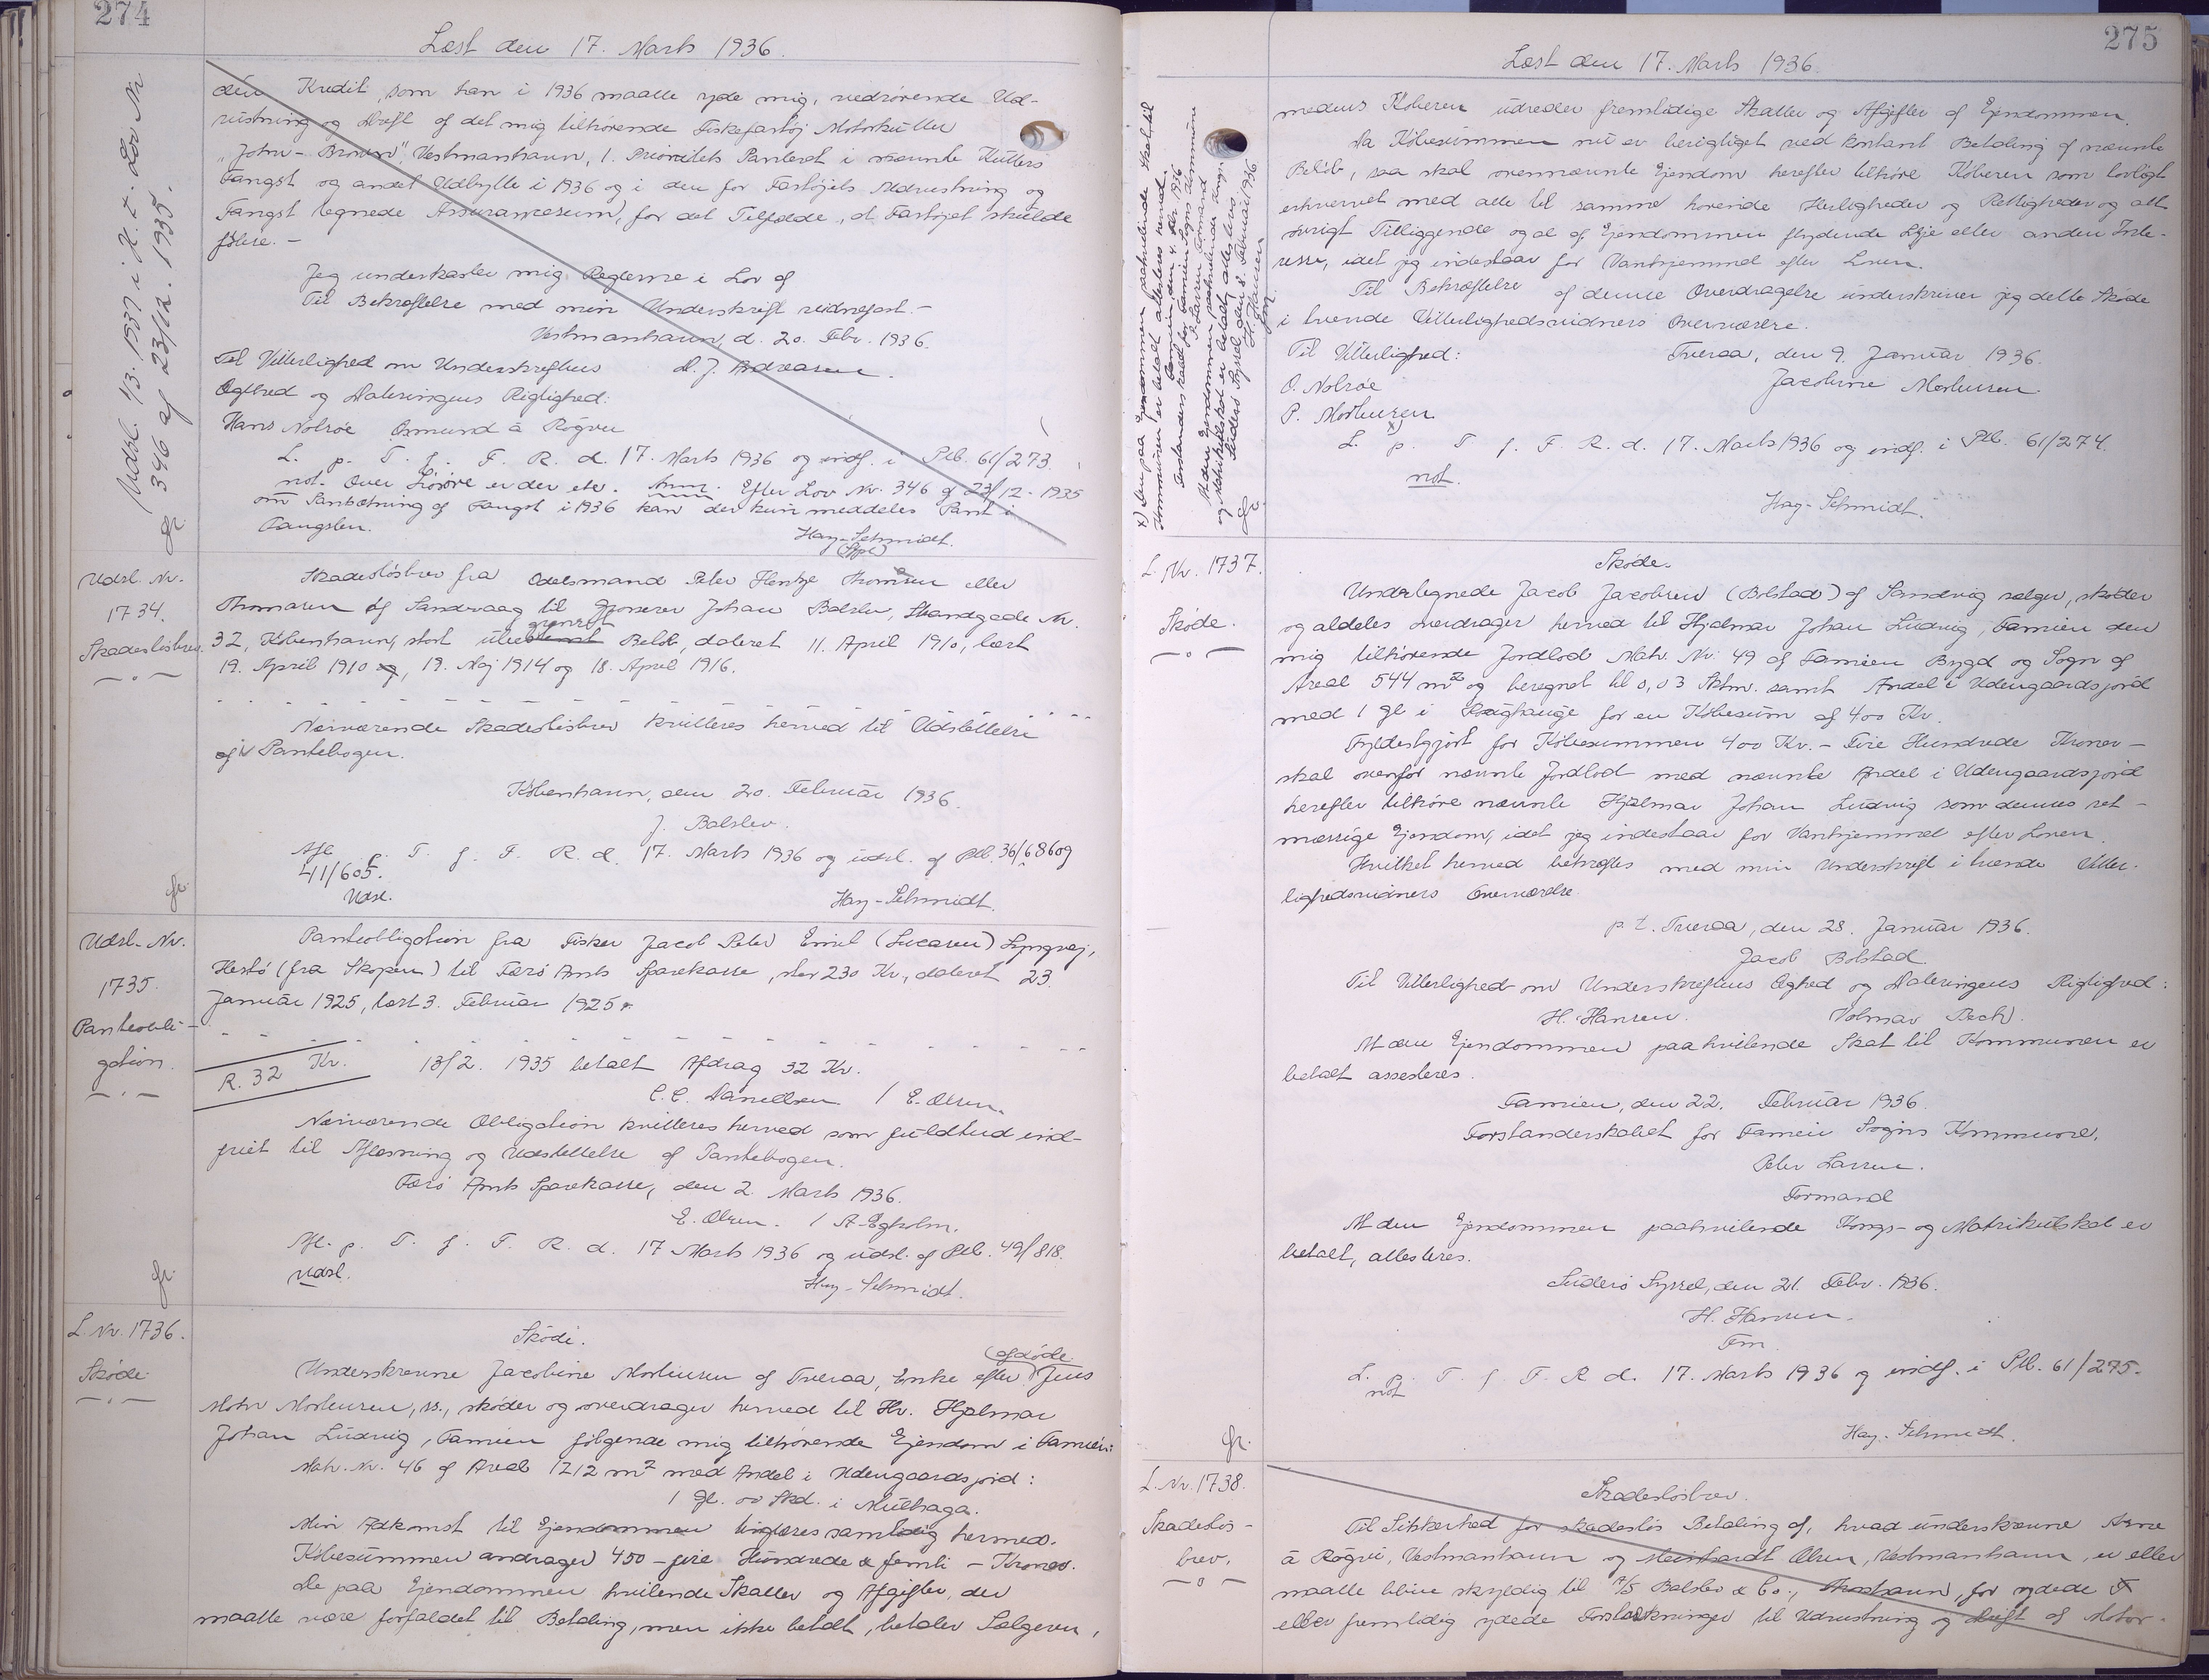 274
Læst den 17. Marts 1936.
Udsl. 1/3. 1937 i H. t. Lov Nr
346 af 23/12. 1935.
den Kredit, som han i 1936 maatte yde mig, vedrörende Ud-
rustning og Drift af det mig tilhörende Fiskefartöj Motorkutter
"John-Brown", Vestmanhavn, 1. Prioritets Panteret i nævnte Kutters
Fangst og andet Udbytte i 1936 og i den for Fartöjets Udrustning og
Fangst tegnede Assurancesum, for det Tilfælde, at Fartöjet skulde
forlise. -
Jeg underkaster mig Reglerne i Lov af
Til Bekræftelse med min Underskrift vidnefast. -
Vestmanhavn, d. 20. Febr. 1936.
Til Vitterlighed om Underskriftens D. J. Andreasen.
Ægthed og Dateringens Rigtighed:
Hans Nolsöe Osmund á Rógvu
L. p. T. f. F. R. d. 17. Marts 1936 og indf. i Ptb. 61/273.
not. Anm. Efter Lov Nr. 346 af 23/12-1935
om Pantsætning af Fangst i 1936 kan der kun meddeles Pant i
Fangsten.
Hay-Schmidt.
Udsl. Nr.
1734.
Skadeslösbrev.
Skadeslösbrev fra Odelsmand Peter Hentze Thomsen eller
Thomasen af Sandvaag til Grosserer Johan Balslev, Strandgade Nr.
grænset
32, København, stort ube Belöb, dateret 11. April 1910, læst
19. April 1910 og, 19. Maj 1914 og 18. April 1916.
Nærværende Skadeslösbrev kvitteres herved til Udslettelse
af Pantebogen.
København, den 20. Februar 1936.
J. Balslev.
Afl p. T. f. F. R. d. 17. Marts 1936 og udsl. af Ptb. 36/686 og
41/605.
Udsl.
Hay-Schmidt.
Udsl-Nr.
1735.
Panteobli-
gation.
Panteobligation fra Fisker Jacob Peter Emil (Lucasen) Lyngvej,
Hestö (fra Skopen) til Færö Amts Sparekasse, stor 230 Kr., dateret 23.
Januar 1925, læst 3. Februar 1925.
R. 32 Kr. 13/2. 1935 betalt Afdrag 32 Kr.
C. C. Danielsen / E. Olsen.
Nærværende Obligation kvitteres herved som fuldtud ind-
friet til Aflæsning og Udslettelse af Pantebogen.
Færö Amts Sparekasse, den 2. Marts 1936.
E. Olsen. / A. Egholm.
Afl. p. T. f. F. R. d. 17 Marts 1936 og udsl. af Ptb. 49/818.
Udsl.
Hay-Schmidt.
L. Nr. 1736.
Sköde
Sköde.
afdöde
Underskrevne Jacobine Mortensen af Tveraa, Enke efter Jens
Mohr Mortensen, ss., sköder og overdrager herved til Hr. Hjalmar
Johan Ludvig, Famien fölgende mig tilhörende Ejendom i Famien:
Matr. Nr. 46 af Areal 1212 m² med Andel i Udengaardsjord:
1 Gl. 00 Skd. i Niúthaga.
Min Adkomst til Ejendommen tinglæses samtidig hermed.
Köbesummen andrager 450 - fire Hundrede & femti - Kroner.
De paa Ejendommen hvilende Skatter og Afgifter, der
maatte være forfaldet til Betaling, men ikke betalt, betaler Sælgeren,
275
Læst den 17. Marts 1936.
x) Den paa Ejendommen paahvilende Skat til
Kommunen er betalt attesteres herved.
Famien, den 4. Febr. 1936
Forstanderskabet for Famien Sogns Kommune
P. Larsen Formand
At den Ejendommen paahvilende Kongs-
og Matrikulskat er betalt, attesteres
Suderö Syssel, den 8. Februar 1936
H. Hansen
Fm.
medens Köberen udreder fremtidige Skatter og Afgifter af Ejendommen.
Da Köbesummen nu er berigtiget ved kontant Betaling af nævnte
Belöb, saa skal ovennævnte Ejendom herefter tilhöre Köberen som lovligt
erhvervet med alle til samme hörende Herligheder og Rettigheder og alt
övrigt Tilliggende og al af Ejendommen flydende Leje eller anden Inte-
resse, idet jeg indestaar for Vanhjemmel efter Loven.
Til Bekræftelse af denne Overdragelse underskriver jeg dette Sköde
i tvende Vitterlighedsvidners Overværelse.
Til Vitterlighed: Tveraa, den 9. Januar 1936.
O. Nolsöe Jacobine Mortensen
P. Mortensen
x)
L. p. T. f. F. R. d. 17. Marts 1936 og indf. i Ptb. 61/274.
not.
Hay-Schmidt.
L. Nr. 1737.
Sköde.
Sköde.
Undertegnede Jacob Jacobsen (Bolstad) af Sandvig sælger, sköder
og aldeles overdrager herved til Hjalmar Johan Ludvig, Famien den
mig tilhörende Jordlod Matr. Nr. 49 af Famien Bygd og Sogn af
Areal 544 m² og beregnet til 0,03 Skm. samt Andel i Udengaardsjord
med 1 Gl i for en Köbesum af 400 Kr.
Fyldestgjort for Köbesummen 400 Kr. - Fire Hundrede Kroner -
skal ovenfor nævnte Jordlod med nævnte Andel i Udengaardsjord
herefter tilhöre nævnte Hjalmar Johan Ludvig som dennes ret-
mæssige Ejendom, idet jeg indestaar for Vanhjemmel efter Loven.
Hvilket herved bekræftes med min Underskrift i tvende Vitter-
lighedsvidners Overværelse.
p. t. Tveraa, den 28. Januar 1936.
Jacob Bolstad.
Til Vitterlighed om Underskriftens Ægthed og Dateringens Rigtighed:
H. Hansen. Volmar Bech.
At den Ejendommen paahvilende Skat til Kommunen er
betalt attesteres.
Famien, den 22. Februar 1936.
Forstanderskabet for Famien Sogns Kommune.
Peter Larsen.
Formand
At den Ejendommen paahvilende Kongs- og Matrikulskat er
betalt, attesteres.
Suderö Syssel, den 21. Febr. 1936.
H. Hansen.
Fm.
L. p. T. f. F. R d. 17. Marts 1936 og indf. i Ptb. 61/275.
not
Hay-Schmidt.
L. Nr. 1738.
Skadeslös-
brev.
Skadeslösbrev.
Til Sikkerhed for skadeslös Betaling af, hvad underskrevne Arne
á Rógvi, Vestmanhavn og Meinhardt Olsen, Vestmanhavn, er eller
maatte blive skyldig til A/S Balslev & Co., Thorshavn, for ydede
eller fremtidig ydede Forstrækninger til Udrustning og Drift af Motor-